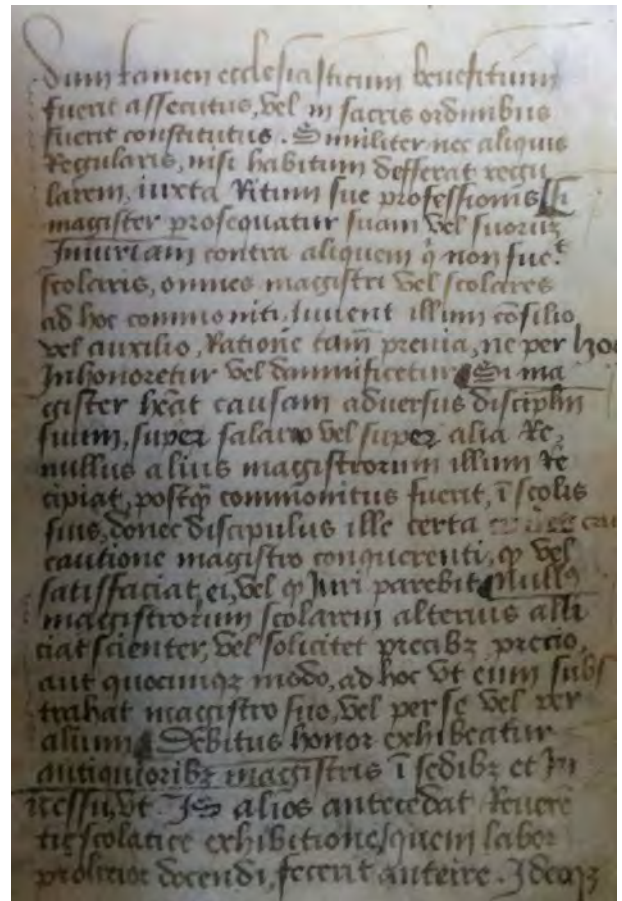 dum tamen ecclesiasticum benefitium
fuerit assecutus, vel in sacris ordinibus
fuerit constitutus. Similiter nec aliquis
Regularis, nisi habitum defferat regu
larem, iuxta Ritum sue professionis Si
magister prosequatur suam vel suoruz
Iniuriam contra aliquem q̇ non fue.t
scolaris, omnes magistri vel scolares
ad hoc commoniti, Iuvent illum cõsilio
vel auxilio, Ratione tam̃ previa, ne per hoc
Inhonoretur vel damnificetur Si ma
gister heãt causam adversus disciplin
suum, super salario vel super alia Re,
nullus alius magistrorum illum Re
cipiat, postq̃ commonitus fuerit, ĩ scolis
suis, donec discipulus ille certa cau
cautione magistro conquerenti, ꝙ vel
satisfaciat, ei, vel ꝙ Iuri parebit Nullꝰ
magistrorum scolarem alterius alli
ciat scienter, vel solicitet precibz precio,
aut quocunqz modo, ad hoc vt eum subs
trahat magistro suo, vel per se vel per
alium Debitus honor exhibeatur
antiquioribz magistris ĩ sedibz et In
cessu, vt Is alios antecedat Reverẽ
tię scolatice exhibitione, quem labor
prolixior docendi, fecerit anteire. Ideoqz